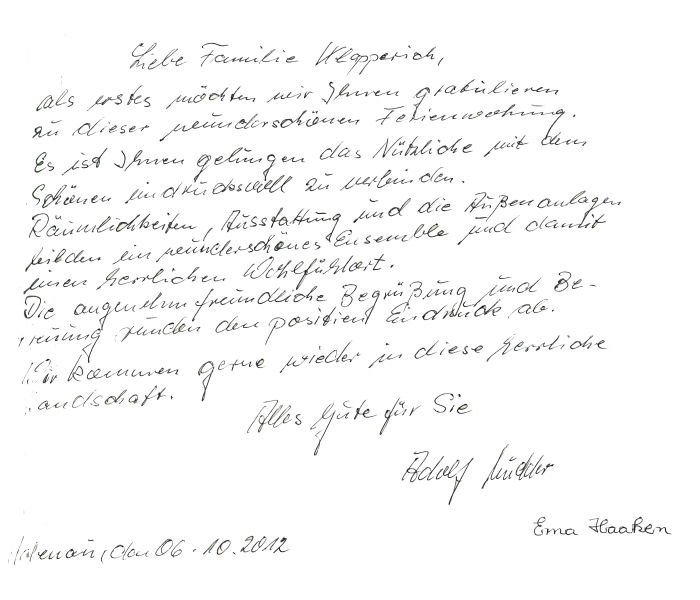 Liebe Familie Klapperich,
als erstes möchten wir Ihnen gratulieren
zu dieser wunderschönen Ferienwohnung.
Es ist Ihnen gelungen das Nützliche mit dem
Schönen eindrucksvoll zu verbinden.
Räumlichkeiten, Ausstattung und die Außenanlagen
bilden ein wunderschönes Ensemble und damit
einen herrlichen Wohlfühlort.
Die angenehm freundliche Begrüßung und Be-
reuung runden den positiven Eindruck ab.
Wir kommen gerne wieder in diese herrliche
andschaft.
Alles Gute für Sie
Adolf
Erna Haaken
den 06.10.2012